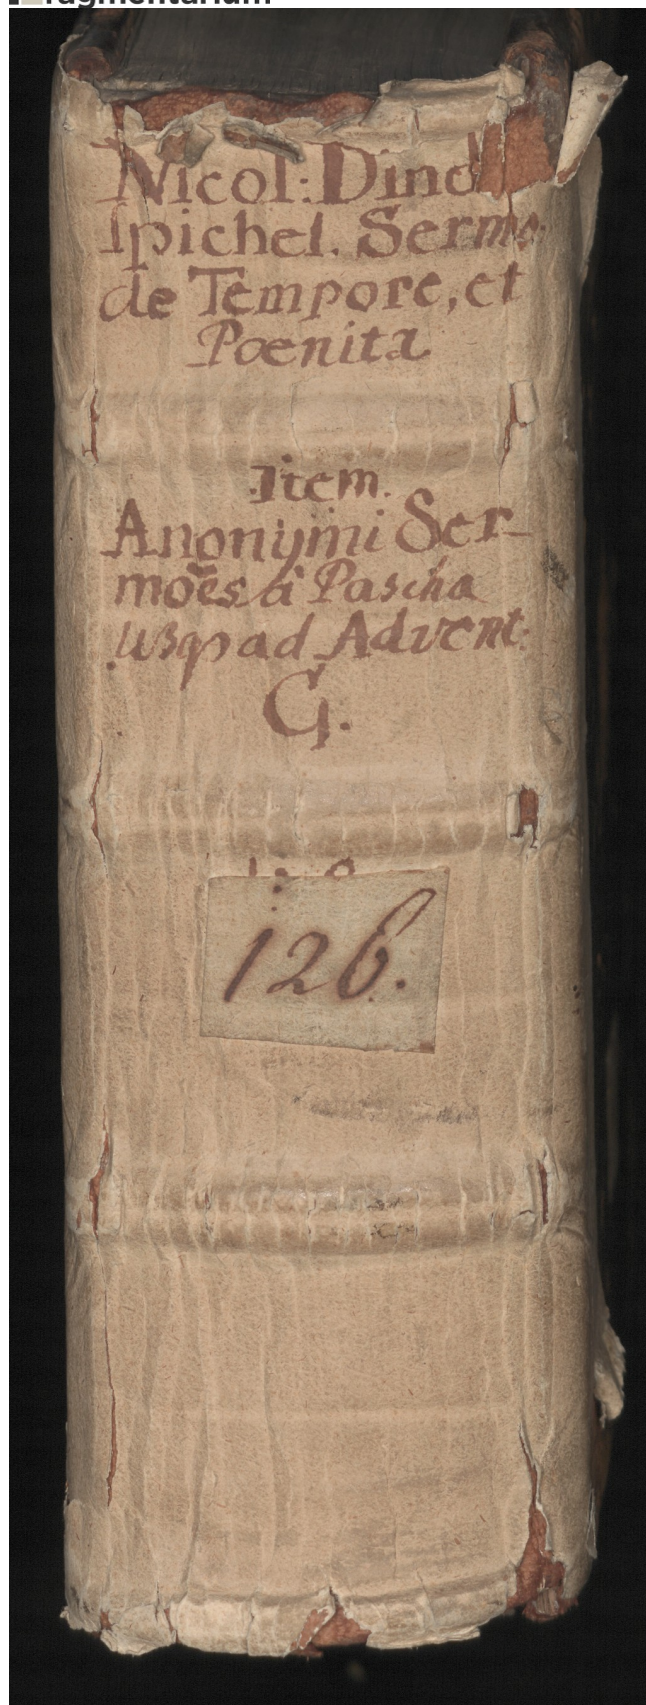 fragmentarium
Nicol: Dinc
lpichel. Sermo:
de Tempore, et
Poenita
Item.
Anonymi Ser-
mo͠es â Pascha
usqꝫ ad Advent:
G.
126.